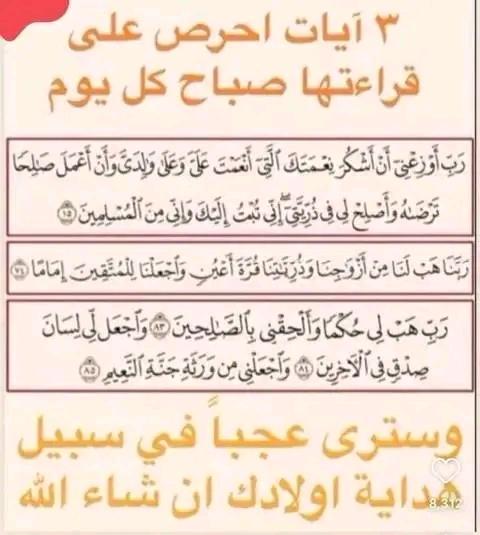 ٣ آيات احرص على
قراءتها صباح كل يوم
رَبِّ أَوْزِعْنِىٓ أَنْ أَشْكُرَ نِعْمَتَكَ ٱلَّتِىٓ أَنْعَمْتَ عَلَىَّ وَعَلَىٰ وَٰلِدَىَّ وَأَنْ أَعْمَلَ صَٰلِحًا
تَرْضَىٰهُ وَأَصْلِحْ لِى فِى ذُرِّيَّتِىٓ ۖ إِنِّى تُبْتُ إِلَيْكَ وَإِنِّى مِنَ ٱلْمُسْلِمِينَ ١٥
رَبَّنَا هَبْ لَنَا مِنْ أَزْوَٰجِنَا وَذُرِّيَّٰتِنَا قُرَّةَ أَعْيُنٍ وَٱجْعَلْنَا لِلْمُتَّقِينَ إِمَامًا ٧٤
رَبِّ هَبْ لِى حُكْمًا وَأَلْحِقْنِى بِٱلصَّٰلِحِينَ ٨٣ وَٱجْعَل لِّى لِسَانَ
صِدْقٍ فِى ٱلْءَاخِرِينَ ٨٤ وَٱجْعَلْنِى مِن وَرَثَةِ جَنَّةِ ٱلنَّعِيمِ ٨٥
وسترى عجباً في سبيل
هداية اولادك ان شاء الله
8,312